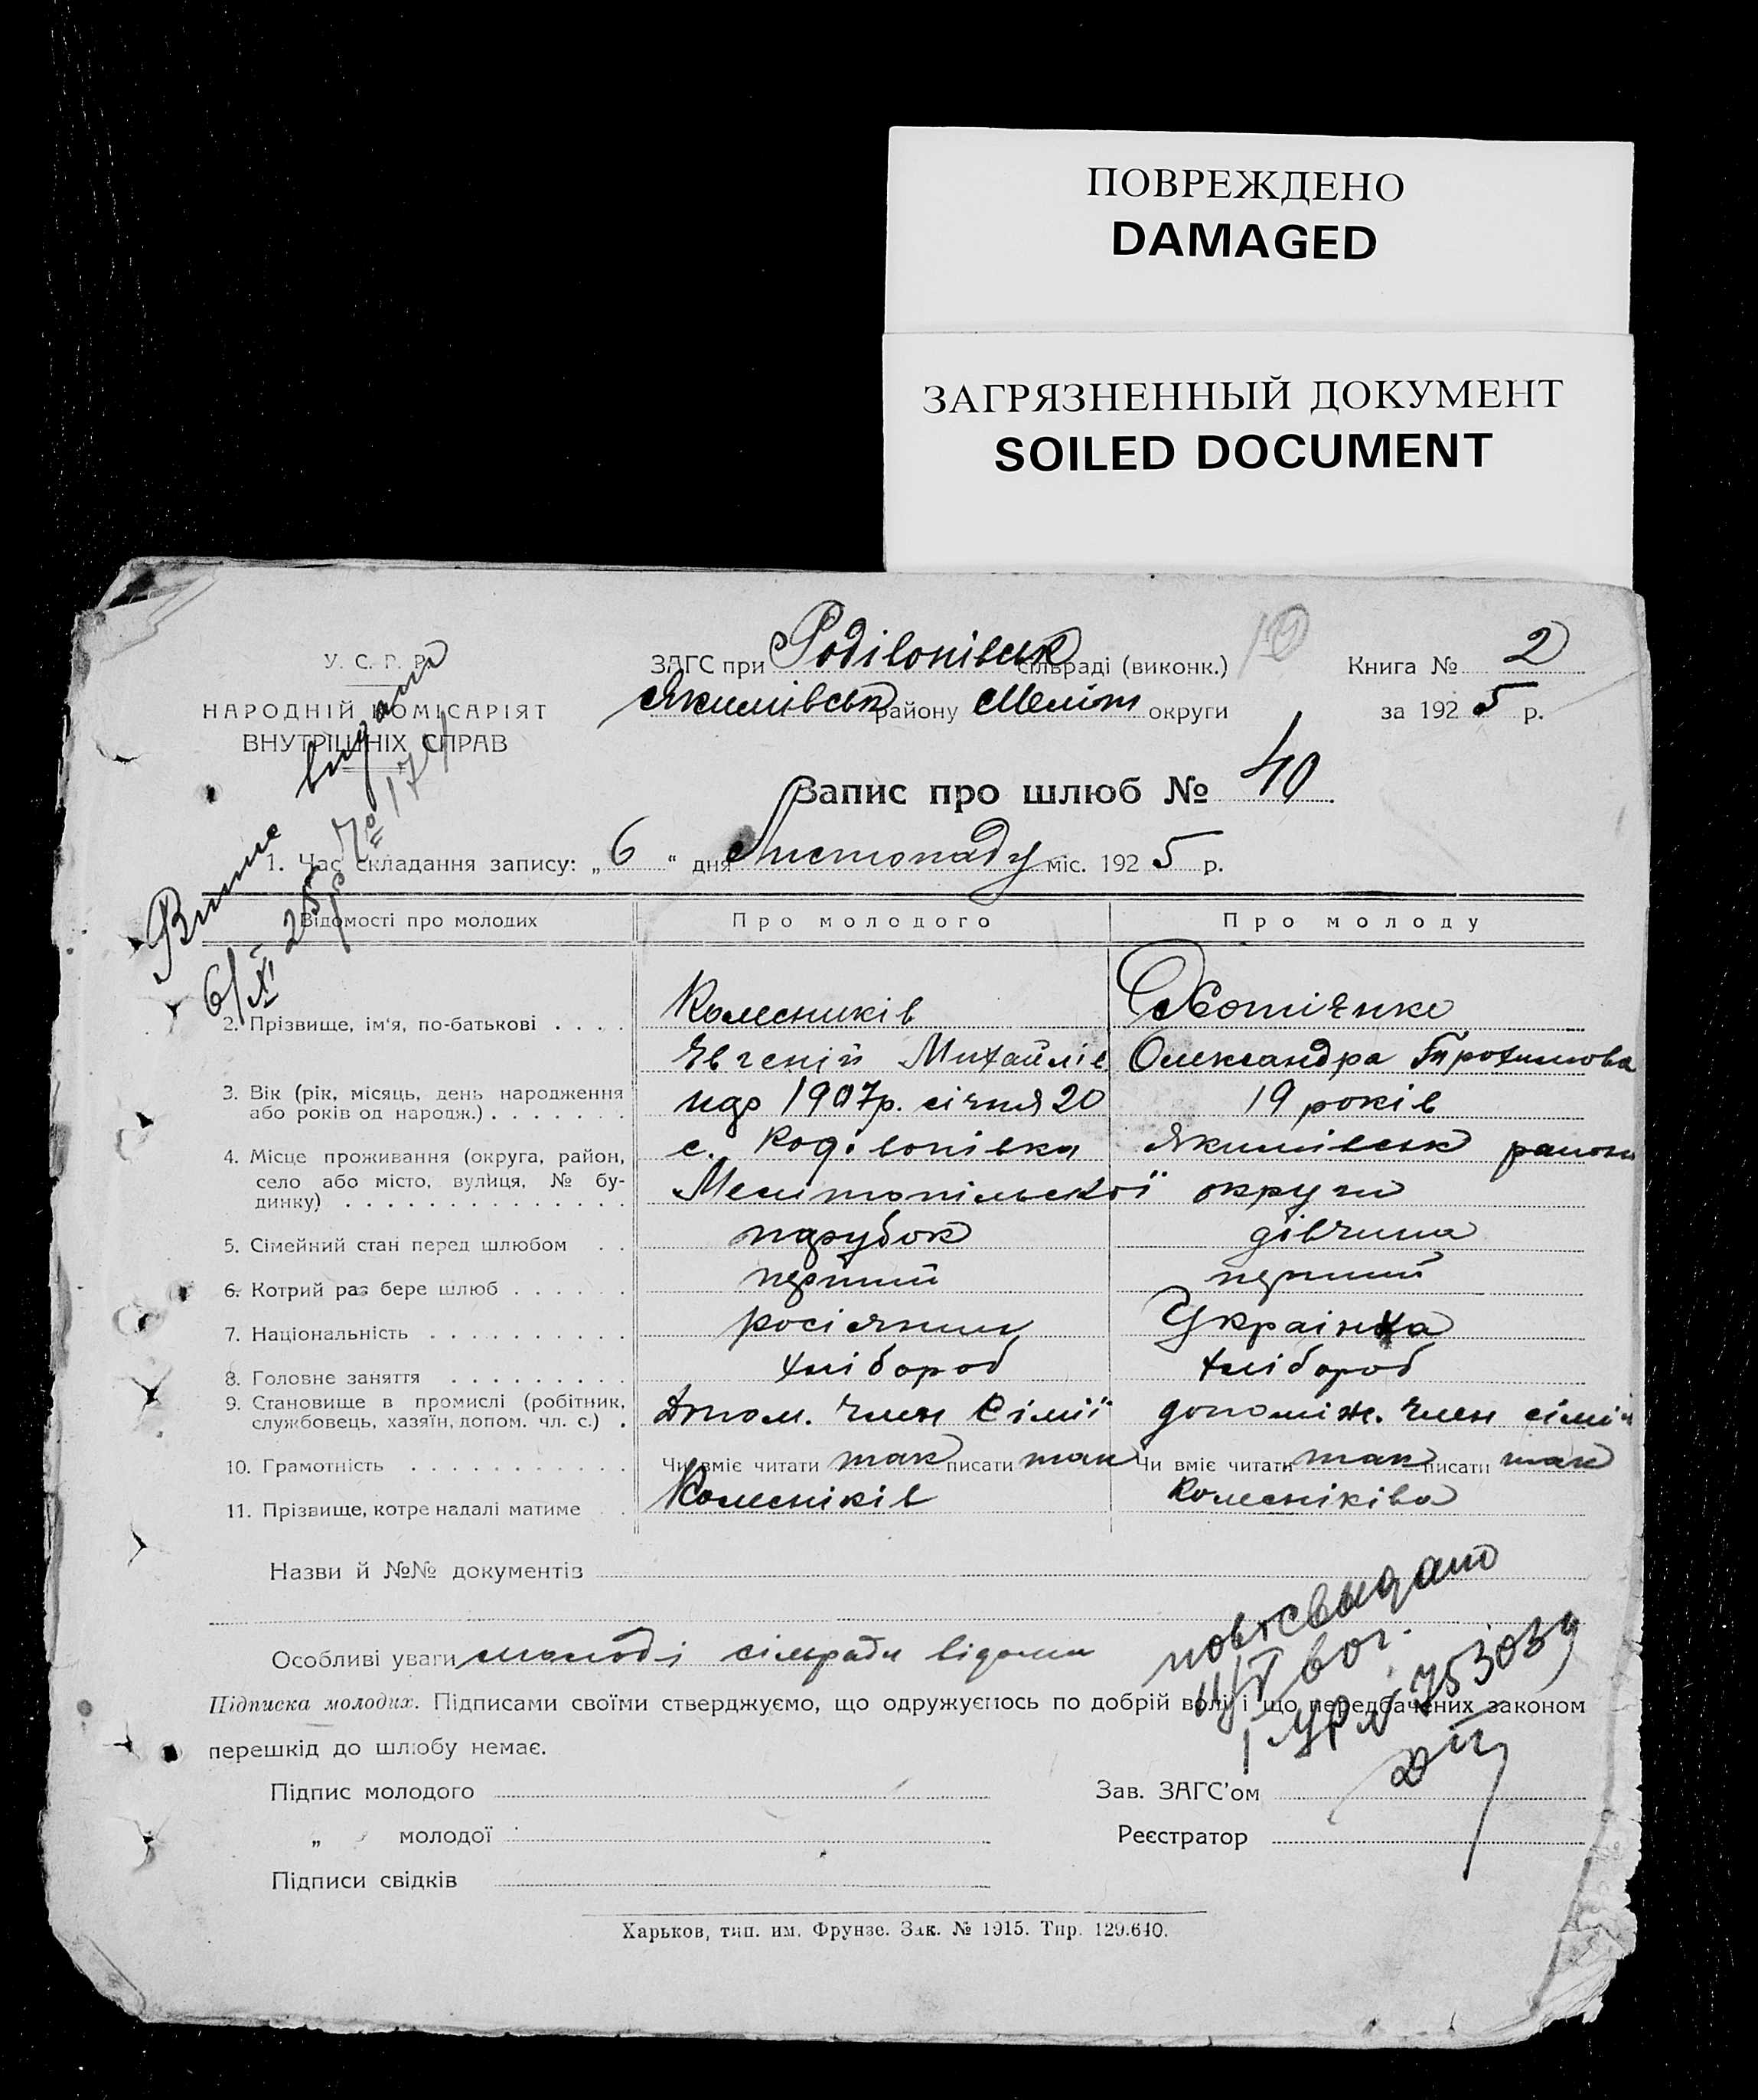 ПОВРЕЖДЕНО
DAMAGED
ЗАГРЯЗНЕННЫЙ ДОКУМЕНТ
SOILED DOCUMENT
У. С. Р. Р.
НАРОДНІЙ КОМІСАРІЯТ
ВНУТРІШНІХ СПРАВ
ЗАГС при Родівонівськ сільраді (виконк.)
Якимівськ району Меліт округи
10
Книга № 2
за 1925 р.
Випис видана
6/XI 25р № 174
Запис про шлюб № 40
1. Час складання запису: „6“ дня Листопаду міс. 1925 р.
Відомості про молодих Про молодого Про молоду
2. Прізвище, ім'я, по-батькові . . . . Колесників
Євгеній Михайлів Олександра Трохимова
3. Вік (рік, місяць, день народження
або років од народж.) . . . . . . . 1907р. січня 20 19 років
4. Місце проживання (округа, район,
село або місто, вулиця, № бу-
динку) . . . . . . . . . . . . . .
с. Родівонівка Якимівськ району
Мелитопільської округи
5. Сімейний стан перед шлюбом . . парубок дівчина
6. Котрий раз бере шлюб . . . . . . перший перший
7. Національність . . . . . . . . . . росіянин Українка
8. Головне заняття . . . . . . . . . хлібороб хлібороб
9. Становище в промислі (робітник,
службовець, хазяїн, допом. чл. с.) . Допом. член сімії допоміж. член сімії
10. Грамотність . . . . . . . . . . . Чи вміє читати так писати так Чи вміє читати так писати так
11. Прізвище, котре надалі матиме . . Колесніків Колесніківа
Назви й №№ документів
Особливі уваги молоді сілради відоми
повт свыдано
753039
Підписка молодих. Підписами своїми стверджуємо, що одружуємось по добрій волі і що передбачених законом
перешкід до шлюбу немає.
Підпис молодого
„ молодої
Підписи свідків
Зав. ЗАГС'ом
Реєстратор
Харьков, тип. им. Фрунзе. Зак. № 1915. Тир. 129.640.